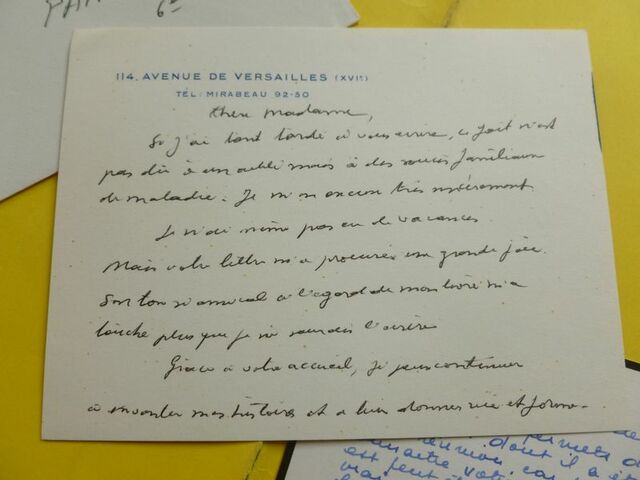 PAR
6e
114, AVENUE DE VERSAILLES (XVIe)
TÉL: MIRABEAU 92-50
Chère Madame,
Si j'ai tant tardé à vous écrire, ce fait n'est
pas dû à un oubli mais à des soucis familiaux
de maladie. Je m'en excuse très sincèrement.
Je n'ai même pas eu de vacances.
Mais votre lettre m'a procuré une grande joie.
Son ton si amical à l'égard de mon livre m'a
touché plus que je ne saurais l'écrire.
Grâce à votre accueil, je peux continuer
à inventer mes histoires et à leur donner vie et forme.
dont il a ét
est peut